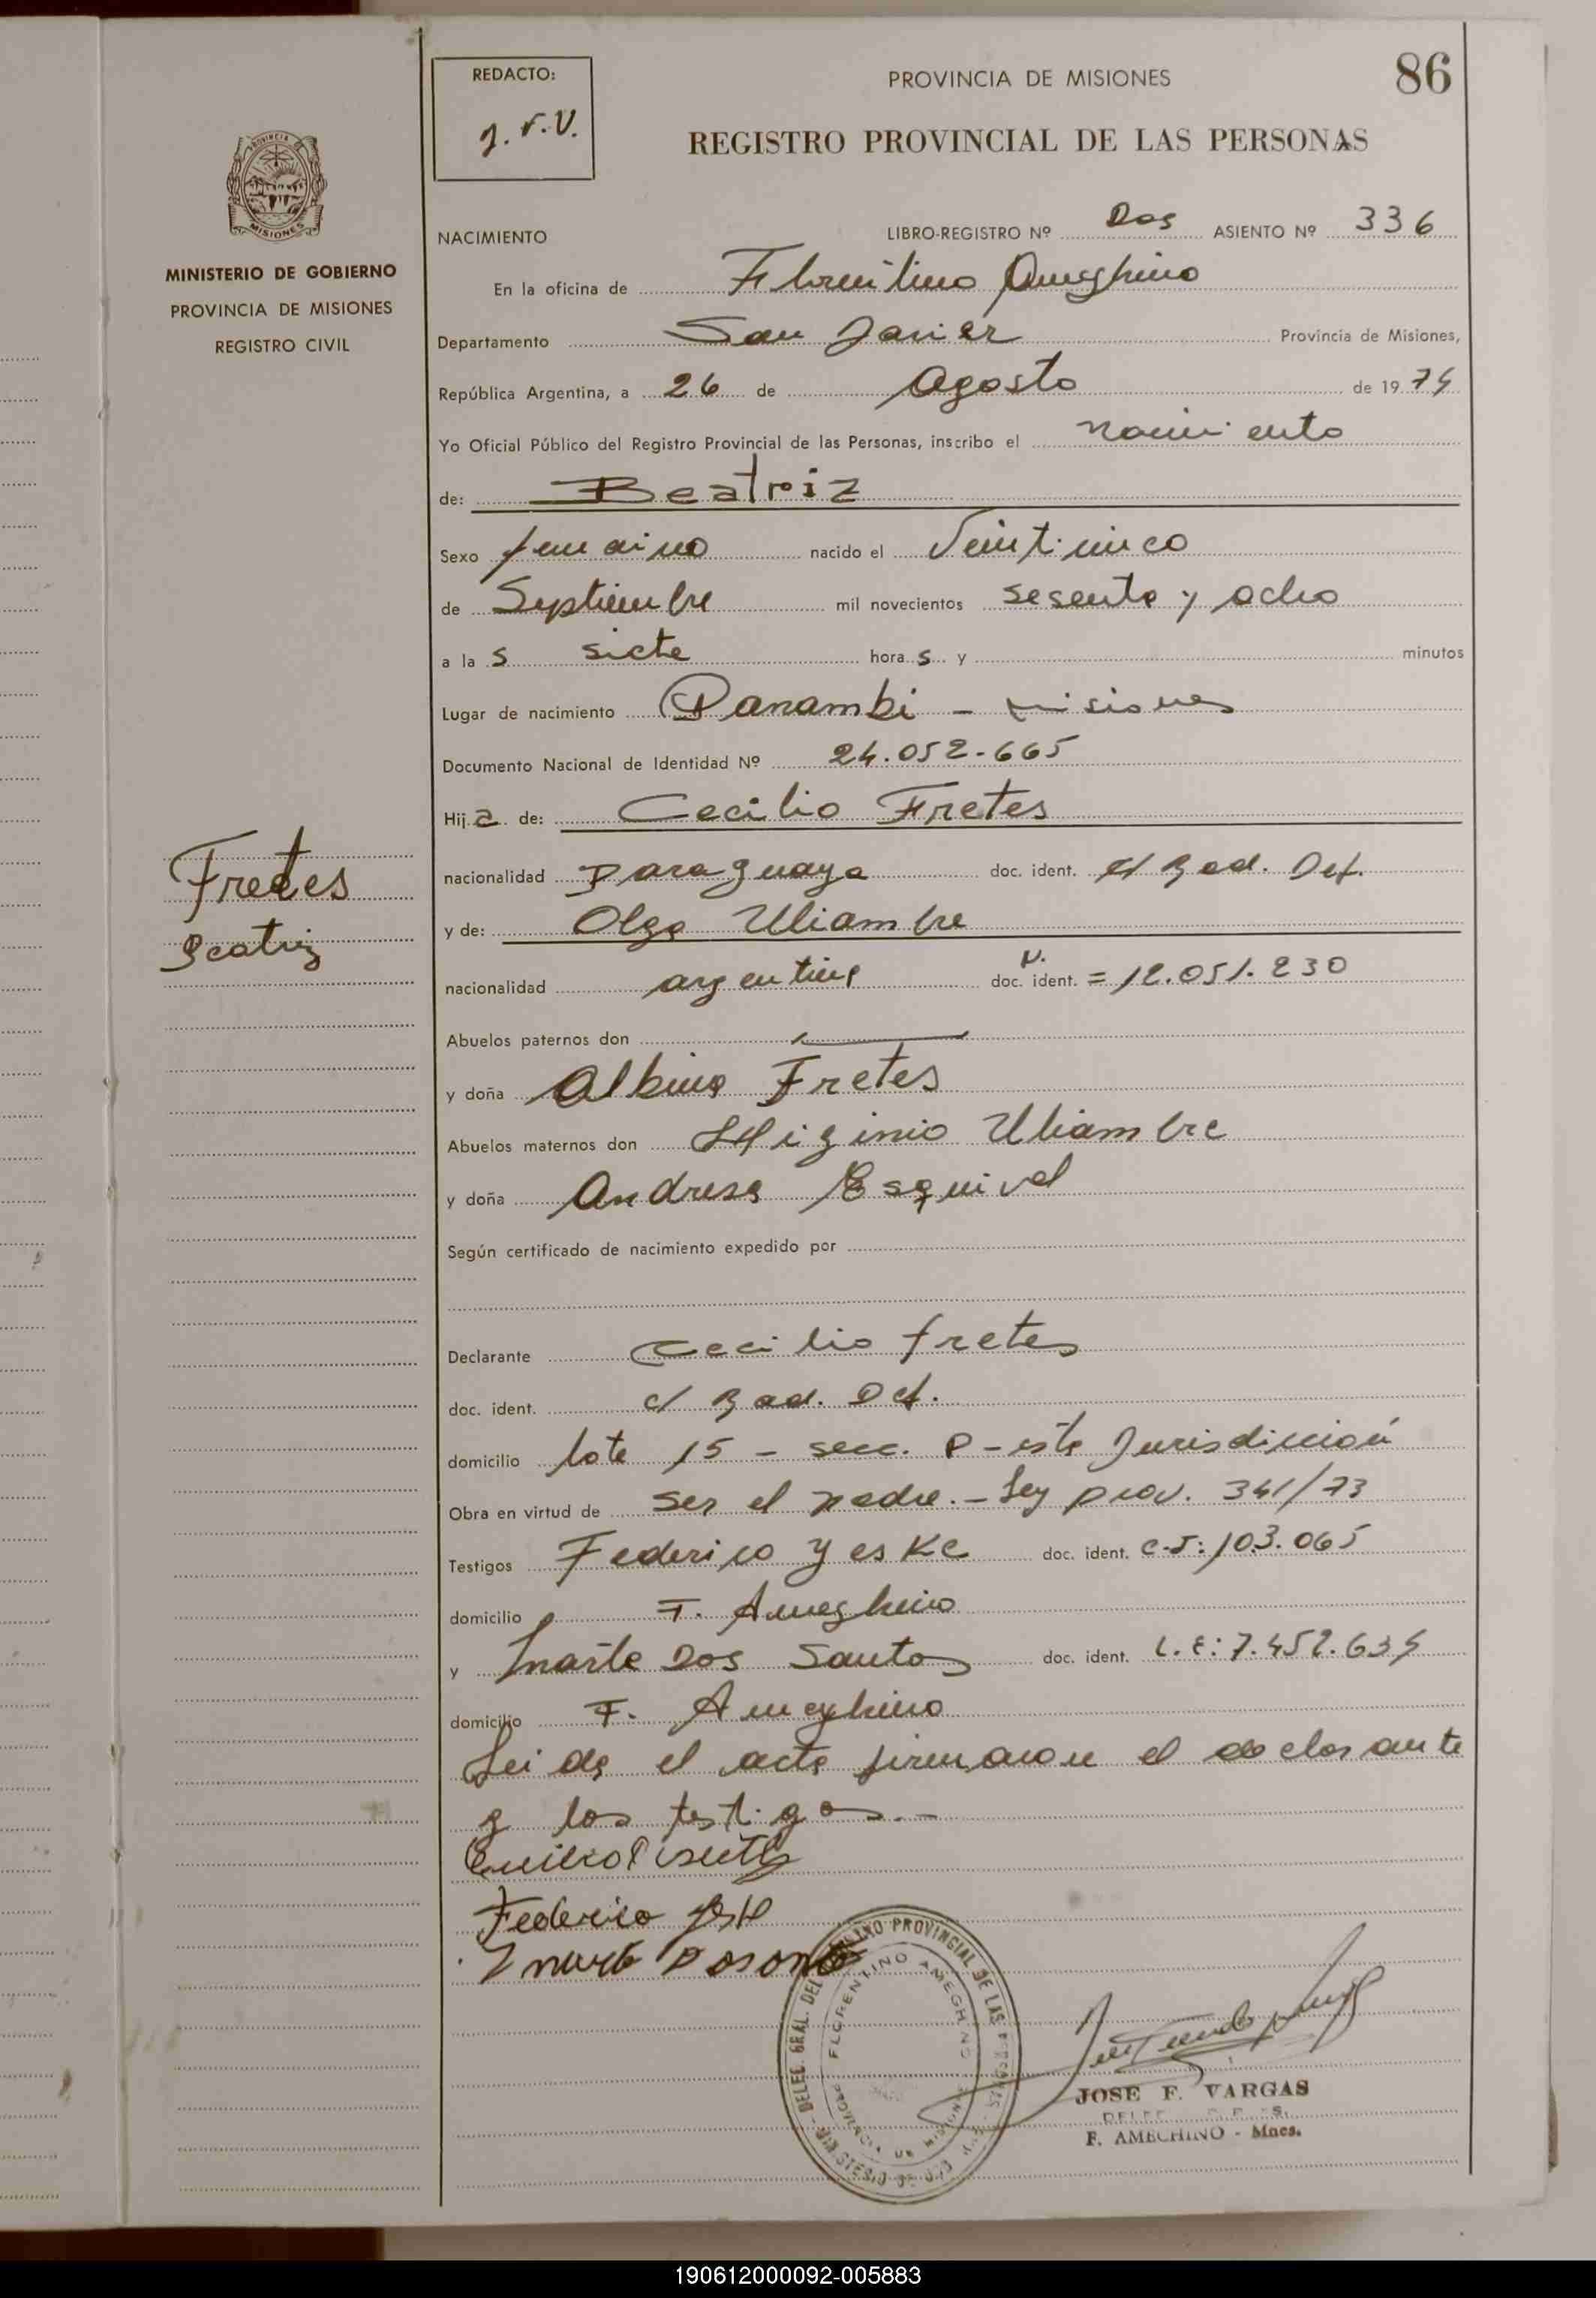 REDACTO:
J. F. V.
PROVINCIA DE MISIONES
86
REGISTRO PROVINCIAL DE LAS PERSONAS
PROVINCIA
MISIONES
MINISTERIO DE GOBIERNO
PROVINCIA DE MISIONES
REGISTRO CIVIL
NACIMIENTO LIBRO-REGISTRO Nº Dos ASIENTO Nº 336
En la oficina de Florentino Ameghino
Departamento San Javier Provincia de Misiones,
República Argentina, a 26 de Agosto de 1974
Yo Oficial Público del Registro Provincial de las Personas, inscribo el nacimiento
de: Beatriz
Sexo femenino nacido el Veinticinco
de Septiembre mil novecientos sesenta y ocho
a las siete horas y minutos
Lugar de nacimiento Panambi - Misiones
Documento Nacional de Identidad Nº 24.052.665
Hija de: Cecilio Fretes
Fretes
Beatriz
nacionalidad Paraguaya doc. ident. c/ Rad. Def.
y de: Olga Uliambre
nacionalidad argentina doc. ident. = 12.051.230
Abuelos paternos don
y doña Albina Fretes
Abuelos maternos don Higinio Uliambre
y doña Andresa Esquivel
Según certificado de nacimiento expedido por
Declarante Cecilio fretes
doc. ident. c/ Rad. Def.
domicilio lote 15 - secc. P - esta Jurisdicción
Obra en virtud de ser el padre. - Ley prov. 341/73
Testigos Federico Yeske doc. ident. C.I: 103.065
domicilio F. Ameghino
y Inarte Dos Santos doc. ident. L.E: 7.452.634
domicilio F. Ameghino
Leida el acta firmaron el declarante
y los testigos.-
Federico
DELEG. GRAL. DEL REGISTRO PROVINCIAL DE LAS PERSONAS
FLORENTINO AMEGHINO
PROVINCIA DE MISIONES
MINISTERIO DE GOB.
JOSE F. VARGAS
F. AMEGHINO - Mnes.
190612000092-005883